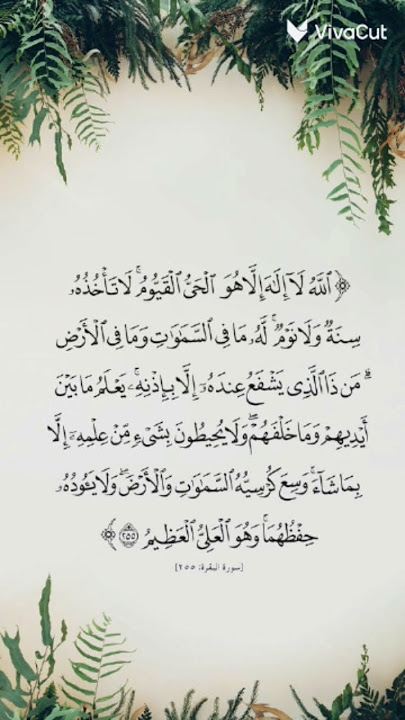 VivaCut
﴿ ٱللَّهُ لَآ إِلَٰهَ إِلَّا هُوَ ٱلْحَىُّ ٱلْقَيُّومُ ۚ لَا تَأْخُذُهُۥ
سِنَةٌ وَلَا نَوْمٌ ۚ لَّهُۥ مَا فِى ٱلسَّمَٰوَٰتِ وَمَا فِى ٱلْأَرْضِ
ۗ مَن ذَا ٱلَّذِى يَشْفَعُ عِندَهُۥٓ إِلَّا بِإِذْنِهِۦ ۚ يَعْلَمُ مَا بَيْنَ
أَيْدِيهِمْ وَمَا خَلْفَهُمْ ۖ وَلَا يُحِيطُونَ بِشَىْءٍ مِّنْ عِلْمِهِۦٓ إِلَّا
بِمَا شَآءَ ۚ وَسِعَ كُرْسِيُّهُ ٱلسَّمَٰوَٰتِ وَٱلْأَرْضَ ۖ وَلَا يَـُٔودُهُۥ
حِفْظُهُمَا ۚ وَهُوَ ٱلْعَلِىُّ ٱلْعَظِيمُ ٢٥٥ ﴾
[سورة البقرة: ٢٥٥]